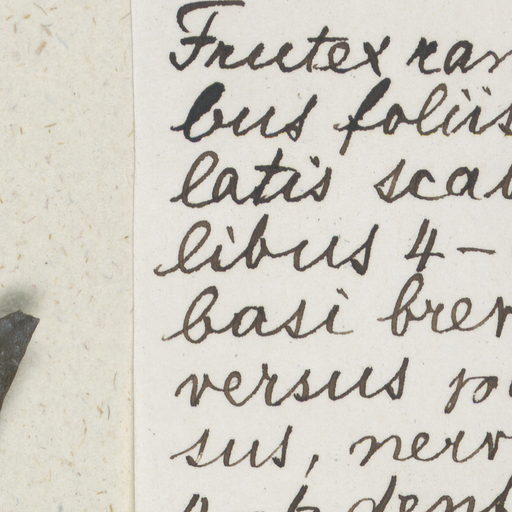 Frutex ram
bus foliis
latis scab
libus 4-
basi brev
versus
sus, nerv